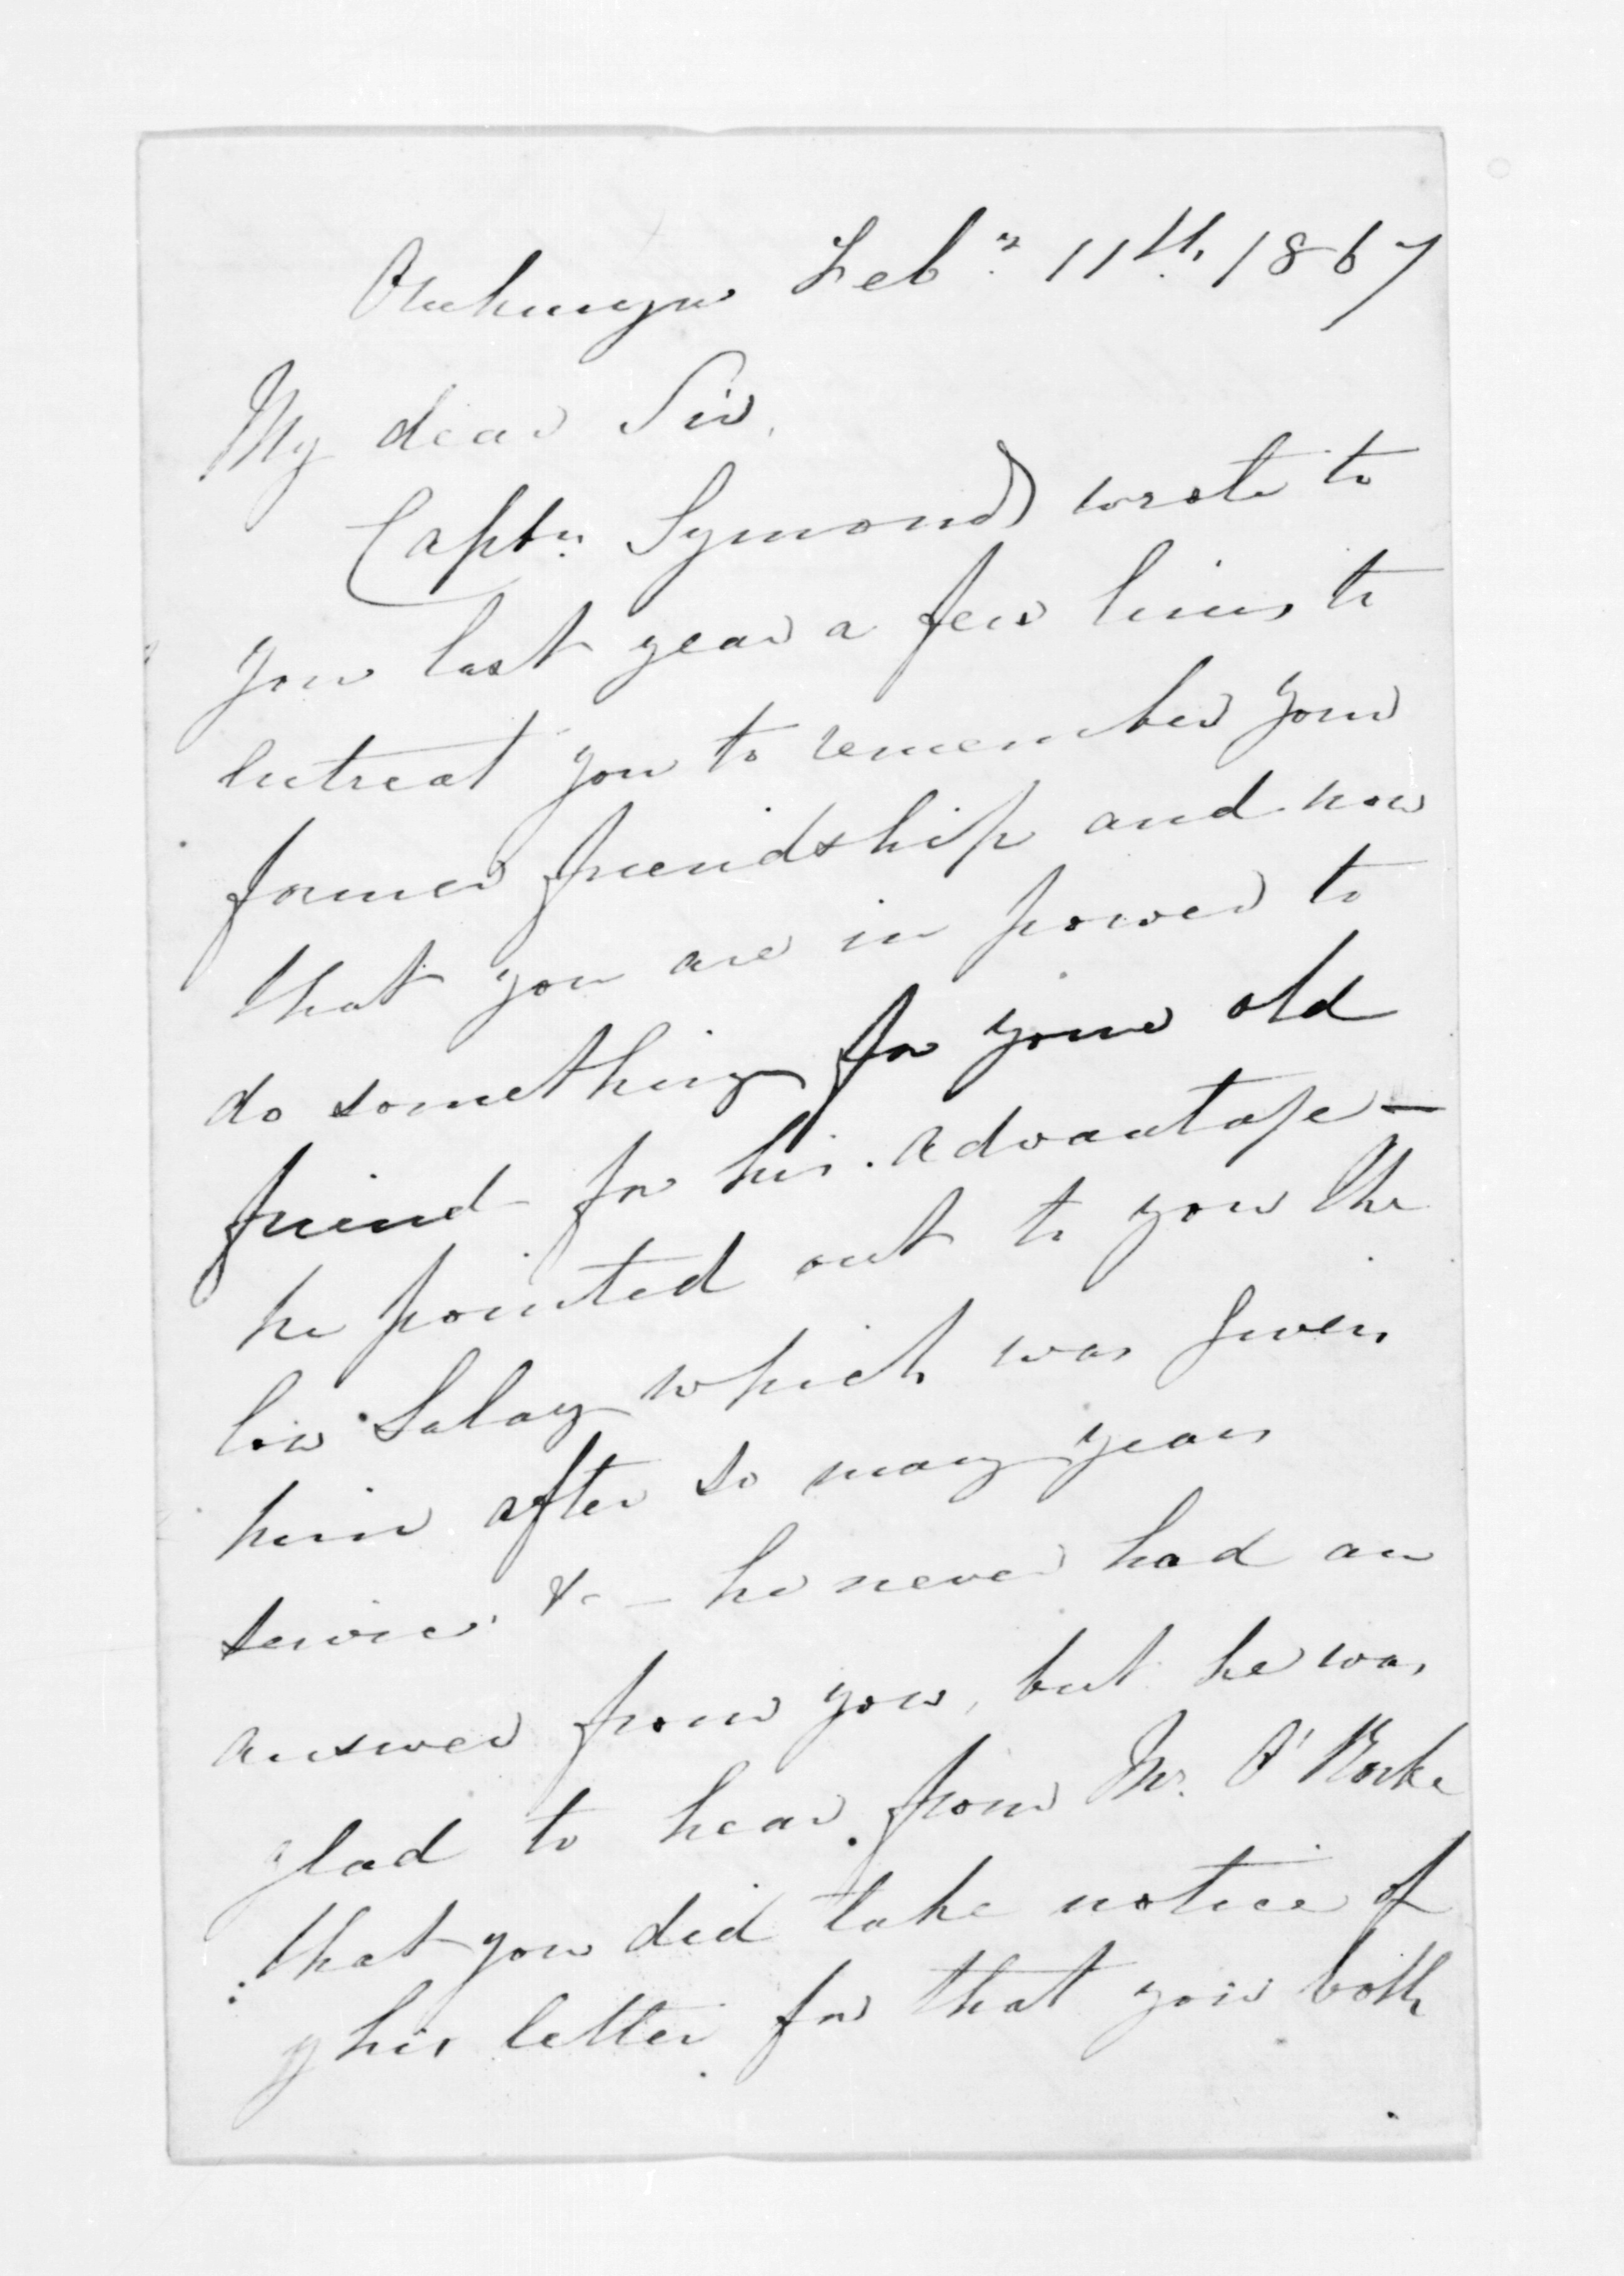 Onehunga Feby 11th 1867
My dear Sir,
Captn Symonds wrote to
you last year a few lines to
entreat you to remember your
former friendship and now
that you are in power to
do something for your old
friend for his advantage —
he pointed out to you the
low Salary which was given
him after so many years
service &c — he never had an
answer from you, but he was
glad to hear from Mr. O'Rorke
that you did take notice of
his letter for that you both